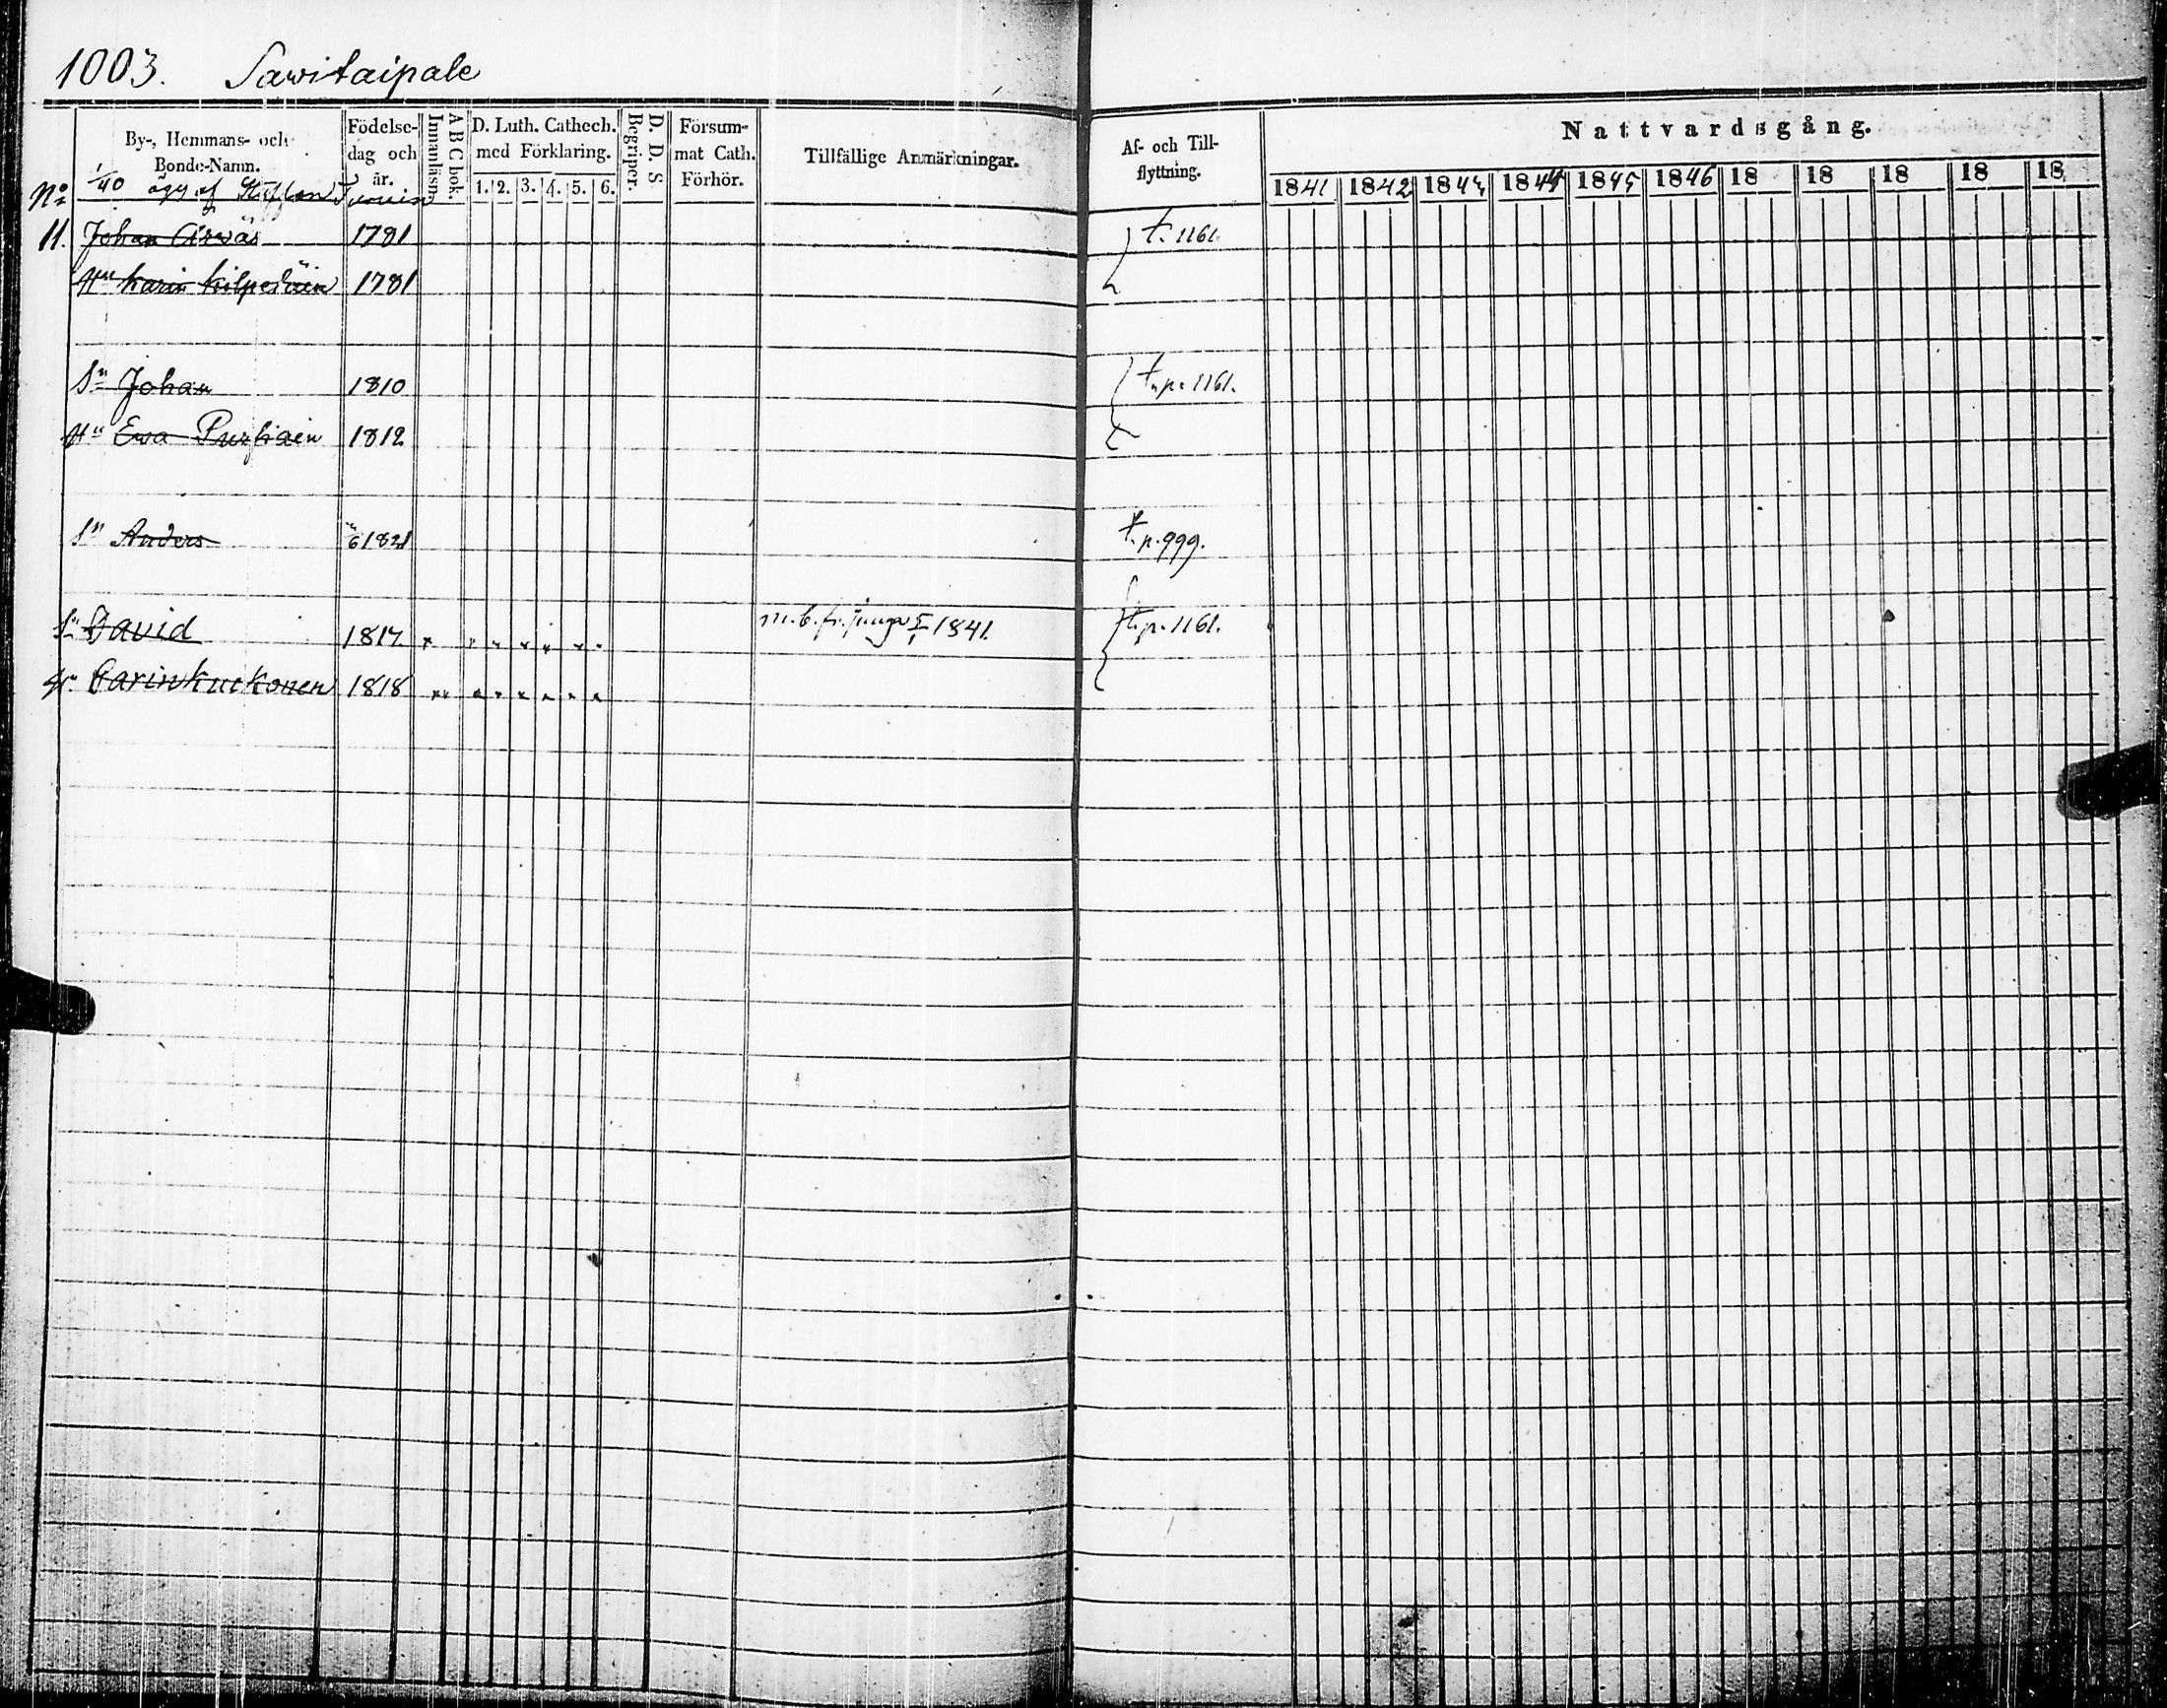 1003. Sawitaipale
By-, Hemmans- och Bonde-Namn.
Födelse-dag och år.
Innanläsn.
A B C bok.
D. Luth. Cathech. med Förklaring.
1. 2. 3. 4. 5. 6.
Begriper.
D. D. S.
Försum-mat Cath. Förhör.
Tillfällige Anmärkningar.
Af- och Till-flyttning.
Nattvardsgång.
1841 1842 1843 1844 1845 1846 18 18 18 18 18
No 1/40 äges af
11. Johan 1781 t. 1161.
Hu Karin 1781
Sn Johan 1810 t. p. 1161.
Hu Ewa 1812
Sn Anders 1821 t. p. 999.
Sn David 1817 1841 t. p. 1161.
Hu Carin Kukkonen 1818